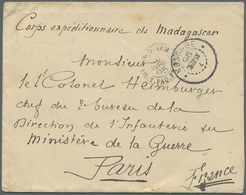 Corps expéditionnaire de Madagascar
Monsieur
le Lt Colonel Heimburger
chef du 2e bureau de la
Direction de l'Infanterie au
Ministère de la Guerre
Paris
France